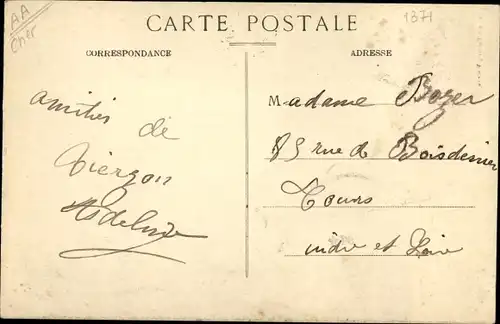 AA
Cher
CARTE POSTALE
1371
CORRESPONDANCE
ADRESSE
amitiés de
Vierzon
Madame
85 rue de Boisdenier
Tours
indre et Loire